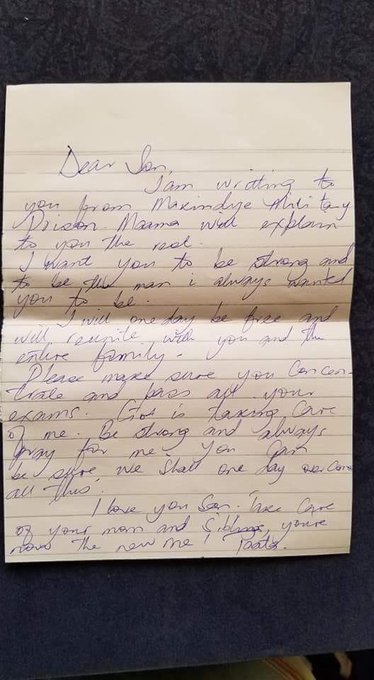 Dear Son,
I am writing to
you from Makindye Military
Prison. Maama will explain
to you the rest.
I want you to be strong and
to be the man i always wanted
you to be.
I will one day be free and
will reunite with you and the
entire family.
Please make sure you concen-
trate and pass all your
exams. God is taking care
of me. Be strong and always
pray for me. You can
be sure, we shall one day over come
all this.
I love you Son. Take care
of your mom and Siblings, you're
now the new me! Taata.